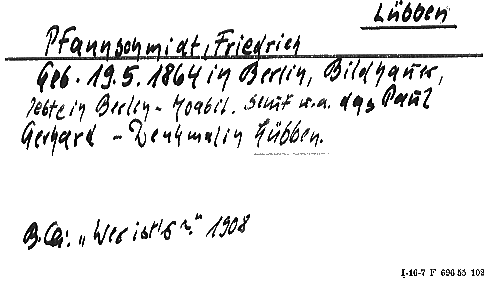 Lübben
Pfannschmidt, Friedrich
Geb. 19.5.1864 in Berlin, Bildhauer,
lebte in Berlin-Moabit. Schuf u.a. das Paul
Gerhard-Denkmal in Lübben.
"Wer ist's?" 1908
I-16-7 F 696 55 102